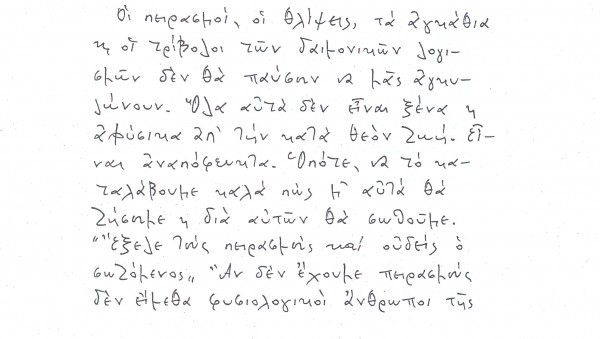 Οἱ πειρασμοί, οἱ θλίψεις, τὰ ἀγκάθια
κ οἱ τρίβολοι τῶν δαιμονικῶν λογι-
σμῶν δὲν θὰ παύσουν νὰ μᾶς ἀγκυ-
λώνουν. Ὅλα αὐτὰ δὲν εἶναι ξένα κ
ἀφύσικα ἀπ' τὴν κατὰ Θεὸν ζωή. Εἶ-
ναι ἀναπόφευκτα. Ὁπότε, νὰ τὸ κα-
ταλάβουμε καλὰ πὼς μ' αὐτὰ θὰ
ζήσουμε κ διὰ αὐτῶν θὰ σωθοῦμε.
"Ἔξελε τοὺς πειρασμοὺς καὶ οὐδεὶς ὁ
σωζόμενος" Ἂν δὲν ἔχουμε πειρασμοὺς
δὲν εἴμεθα φυσιολογικοὶ ἄνθρωποι τῆς